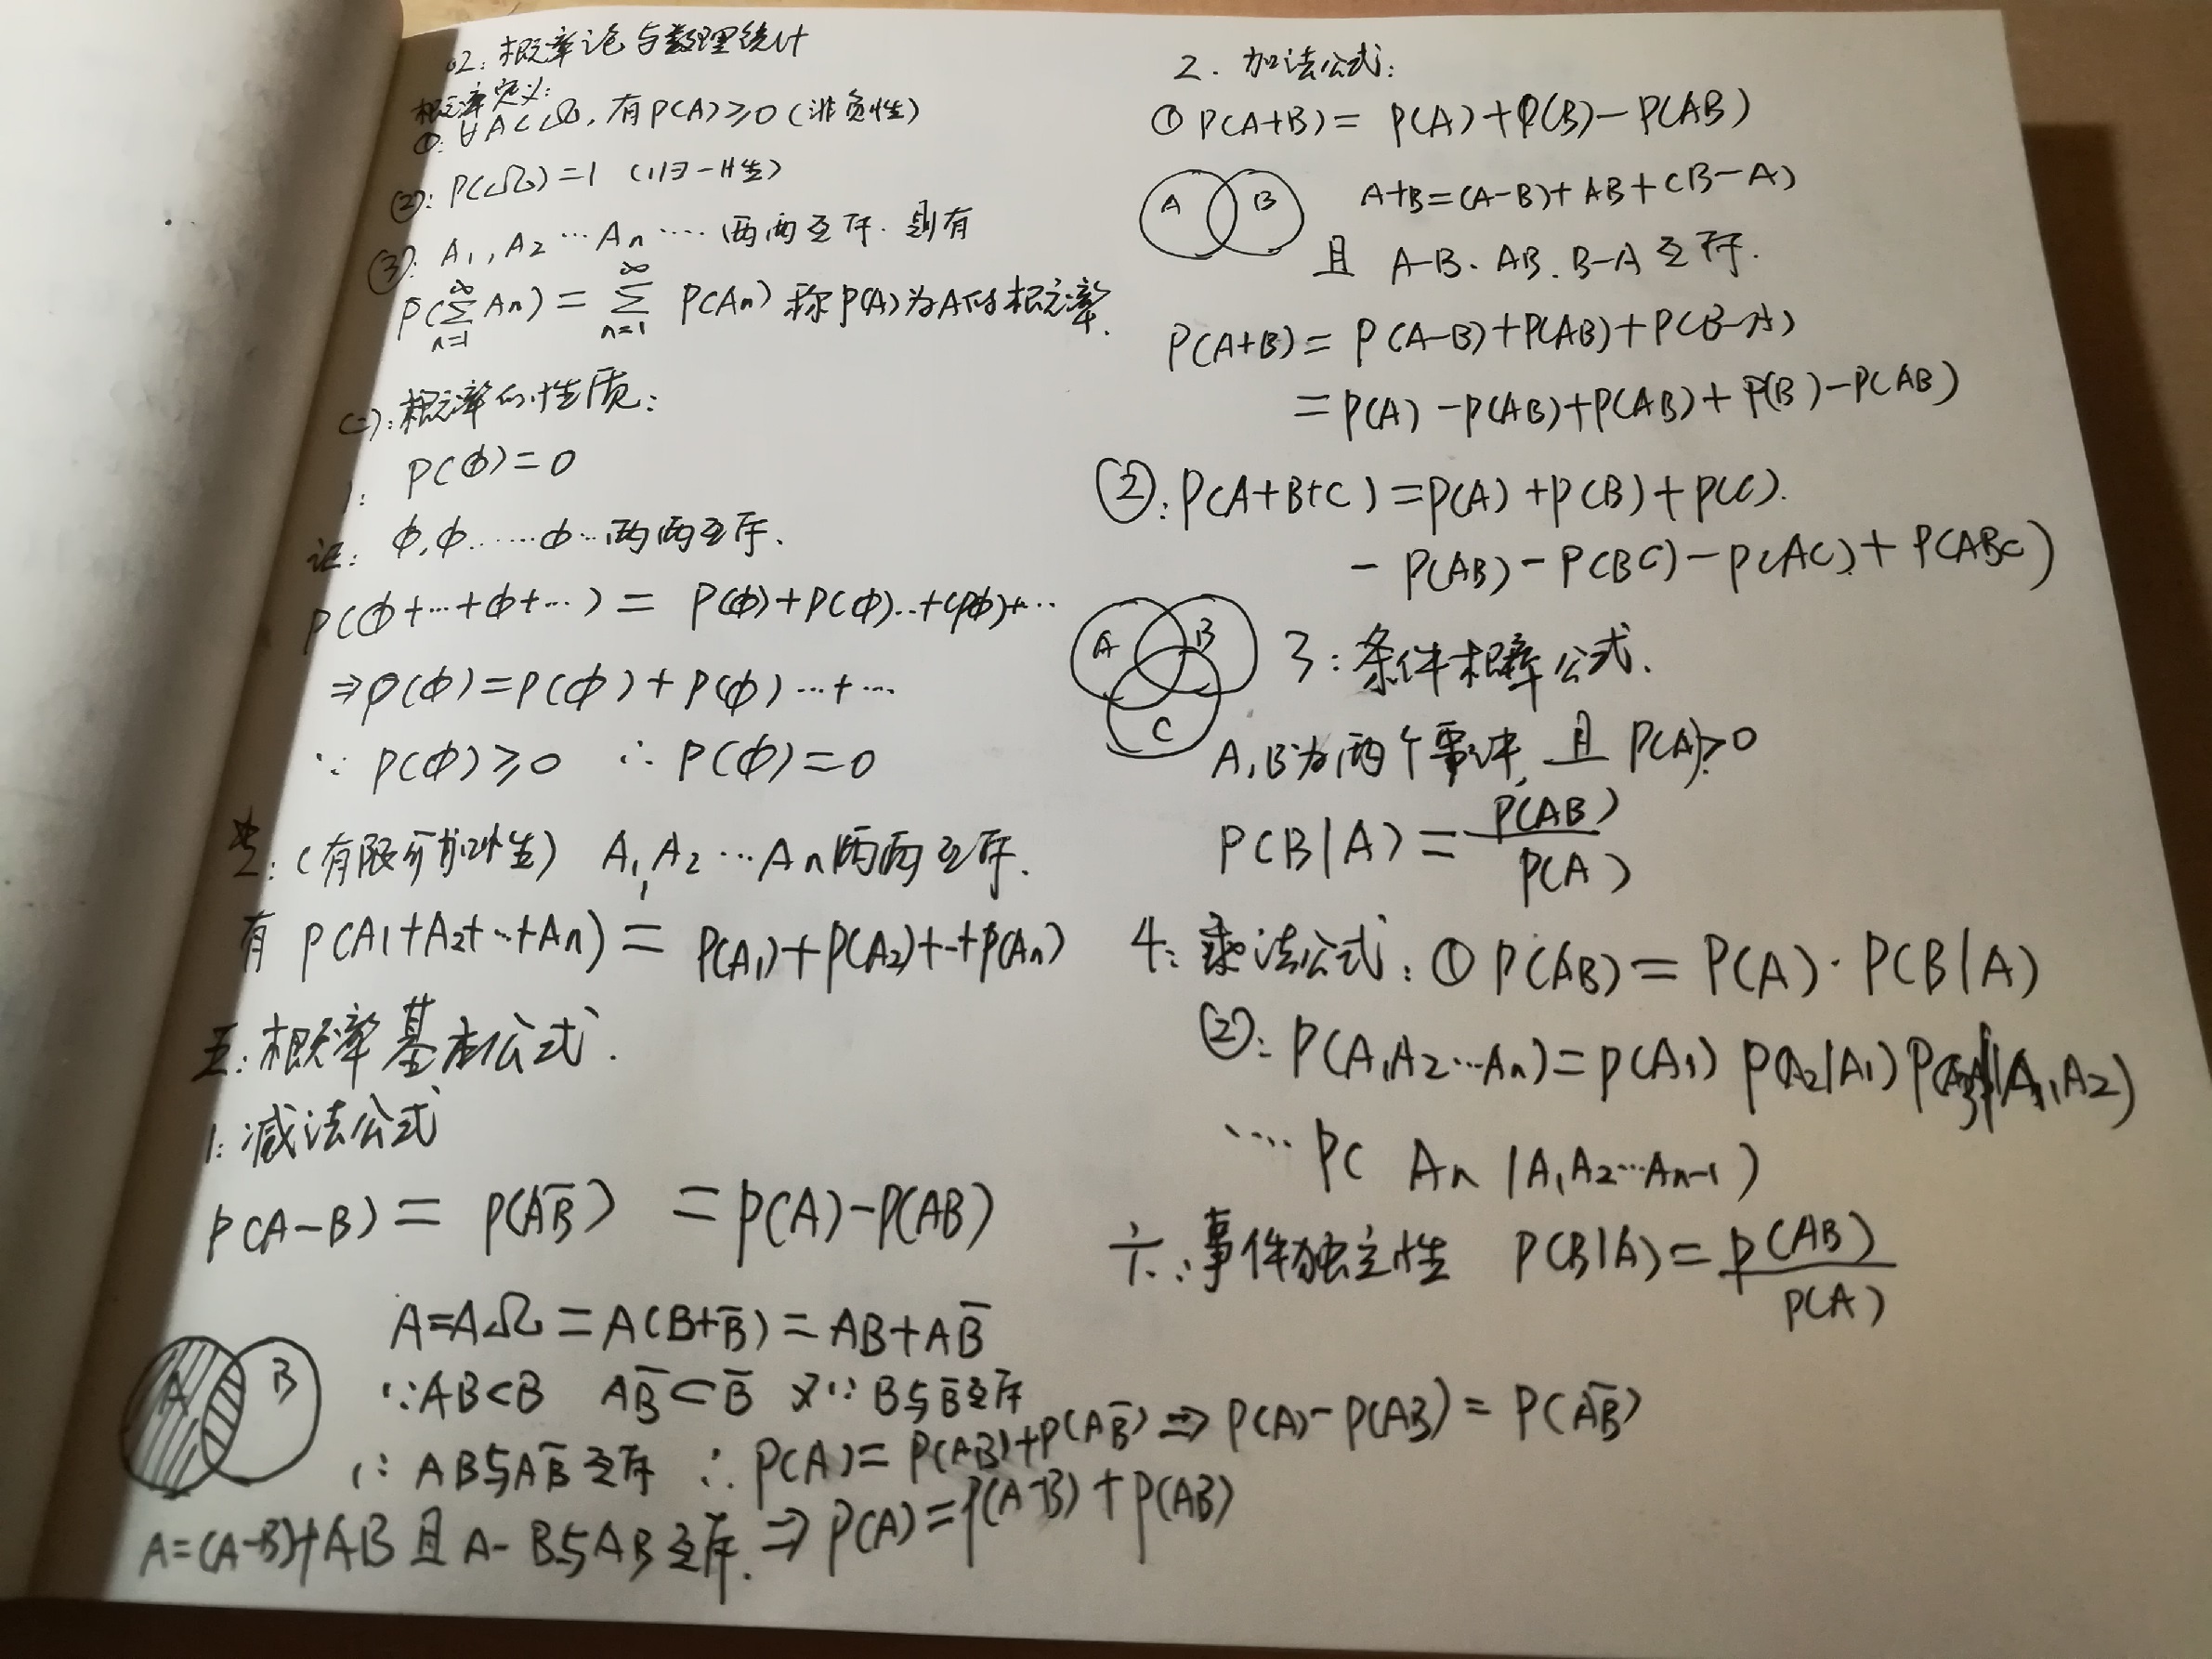 02: 概率论与数理统计
概率定义:
①: ∀A⊂Ω, 有P(A)≥0 (非负性)
②: P(Ω)=1 (归一性)
③: A₁, A₂ … Aₙ …. 两两互斥. 则有
P(∑_{n=1}^{∞} Aₙ) = ∑_{n=1}^{∞} P(Aₙ) 称P(A)为A的概率.
(二): 概率的性质:
1: P(ϕ)=0
证: ϕ,ϕ……ϕ…两两互斥.
P(ϕ+…+ϕ+…) = P(ϕ)+P(ϕ)..+(Pϕ)+…
⇒P(ϕ)=P(ϕ)+P(ϕ)…+…
∵ P(ϕ)≥0 ∴ P(ϕ)=0
2: (有限可加性) A₁,A₂…Aₙ两两互斥.
有 P(A₁+A₂+…+Aₙ) = P(A₁)+P(A₂)+…+P(Aₙ)
五: 概率基本公式.
1: 减法公式
P(A-B) = P(AB̅) = P(A)-P(AB)
A=AΩ=A(B+B̅)=AB+AB̅
A B
∵AB⊂B AB̅⊂B̅ 又∵B与B̅互斥
∴ AB与AB̅互斥 ∴ P(A)=P(AB)+P(AB̅) ⇒ P(A)-P(AB)=P(AB̅)
A=(A-B)+AB 且 A-B与AB互斥. ⇒ P(A)=P(A-B)+P(AB)
2. 加法公式:
① P(A+B)= P(A)+P(B)-P(AB)
A B
A+B=(A-B)+AB+(B-A)
且 A-B. AB. B-A 互斥.
P(A+B)= P(A-B)+P(AB)+P(B-A)
=P(A)-P(AB)+P(AB)+P(B)-P(AB)
②: P(A+B+C)=P(A)+P(B)+P(C).
-P(AB)-P(BC)-P(AC)+P(ABC)
A B
C
3: 条件概率公式.
A,B为两个事件, 且 P(A)>0
P(B|A)=P(AB)/P(A)
4: 乘法公式: ① P(AB)=P(A)·P(B|A)
②: P(A₁A₂…Aₙ)=P(A₁)P(A₂|A₁)P(A₃|A₁,A₂)
…. P( Aₙ |A₁A₂…Aₙ₋₁)
六: 事件独立性 P(B|A)=P(AB)/P(A)